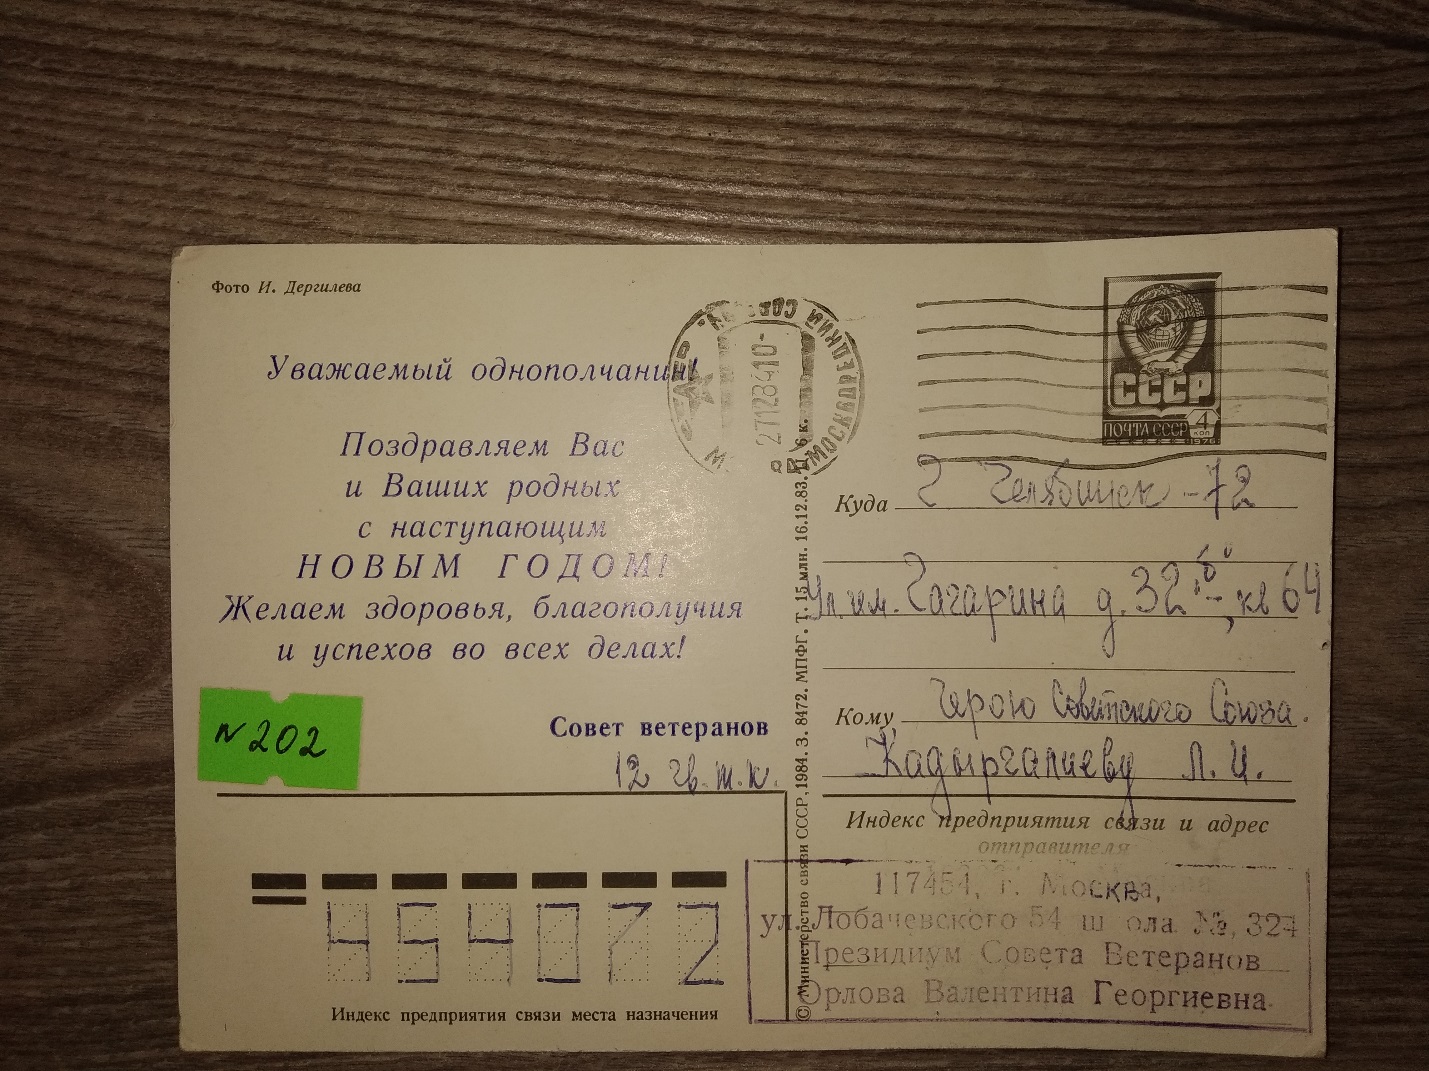 Фото И. Дергилева
Уважаемый однополчанин!
Поздравляем Вас
и Ваших родных
с наступающим
НОВЫМ ГОДОМ!
Желаем здоровья, благополучия
и успехов во всех делах!
Совет ветеранов
12 гв. т. к.
N 202
454072
Индекс предприятия связи места назначения
© Министерство связи СССР, 1984. З. 8472. МПФГ. Т. 15 млн. 16.12.83. Ц. 6 к.
МОСКВОРЕЦКИЙ
27128410
СССР
ПОЧТА СССР 4 КОП
1976
Куда г Челябинск-72
Ул. им. Гагарина д. 32 "б", кв 64
Кому Герою Советского Союза.
Кадыргалиеву Л. И.
Индекс предприятия связи и адрес
отправителя
117454, г. Москва,
ул. Лобачевского 54 ш ола №, 324
Президиум Совета Ветеранов
Орлова Валентина Георгиевна